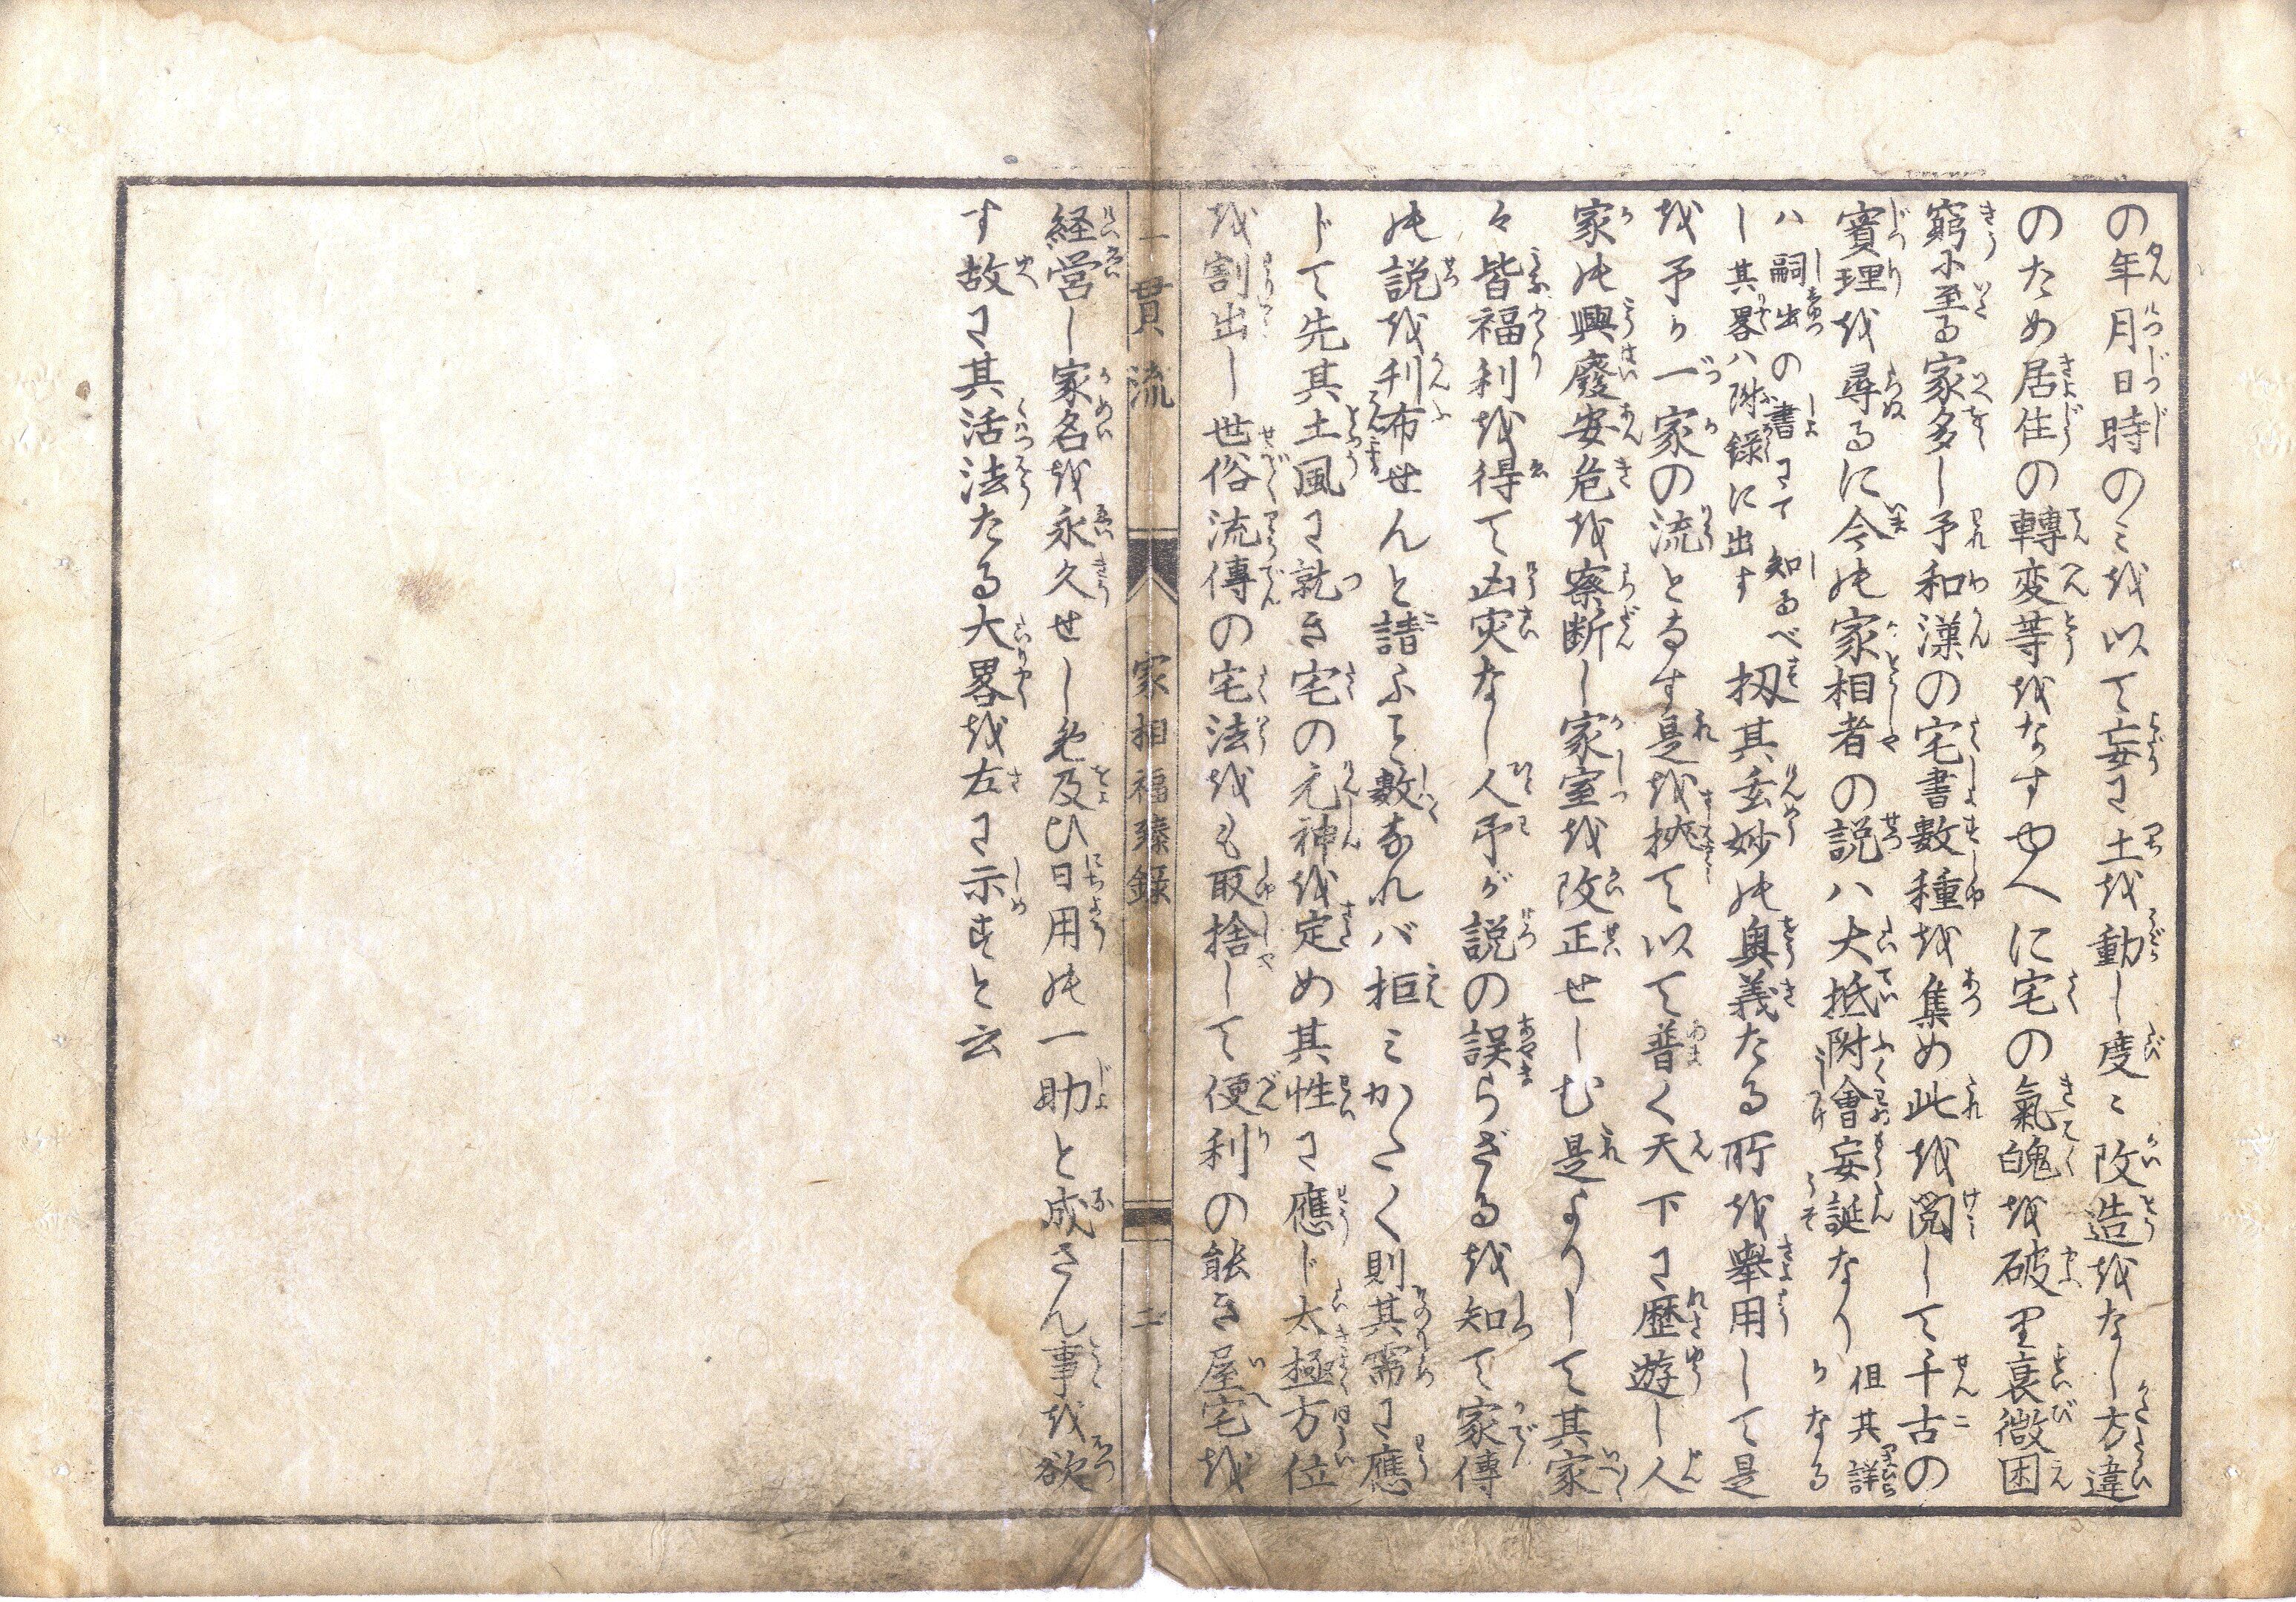 の年月日時のミを以て妄に土を動し度〻改造をなし方違
のため居住の轉変等をなすゆへに宅の氣魄を破り衰微困
窮に至る家多し予和漢の宅書數種を集め此を閲して千古の
實理を尋るに今の家相者の説ハ大抵附會妄誕なり但其詳かなる
ハ嗣出の書にて知るべし其畧ハ附録に出す扨其玄妙の奥義たる所を舉用して是
を予が一家の流となす是を挾て以て普く天下に歴遊し人
家の興廢安危を察断し家室を改正せしむ是よりして其家
々皆福利を得て凶灾なし人予が説の誤らざるを知て家傳
の説を刊布せんと請ふこと數なれバ拒ミかたく則其需に應
じて先其土風に就き宅の元神を定め其性に應じ太極方位
を割出し世俗流傳の宅法をも取捨して便利の能き屋宅を
一貫流 家相福臻録 二
経営し家名を永久せしめ及ひ日用の一助と成さん事を欲
す故に其活法たる大畧を左に示すと云